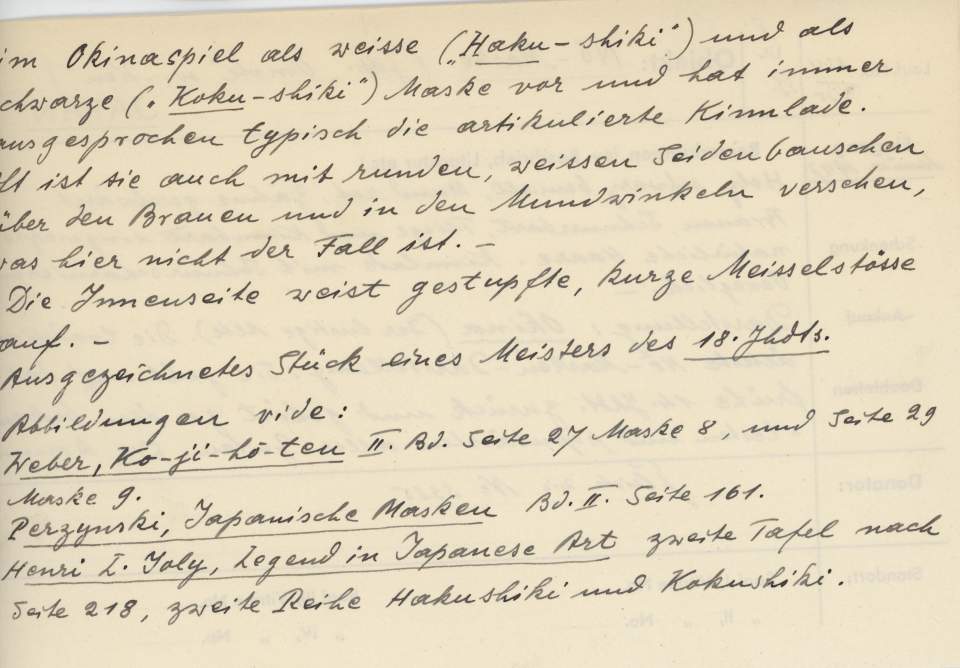 im Okinaspiel als weisse („Haku-shiki") und als
chwarze („Koku-shiki") Maske vor und hat immer
ausgesprochen typisch die artikulierte Kinnlade.
ft ist sie auch mit runden, weissen Seidenbauschen
über den Brauen und in den Mundwinkeln versehen,
was hier nicht der Fall ist. –
Die Innenseite weist gestupfte, kurze Meisselstösse
auf. –
Ausgezeichnetes Stück eines Meisters des 18. Jhdts.
Abbildungen vide:
Weber, Ko-ji-hô-ten II. Bd. Seite 27 Maske 8, und Seite 29
Maske 9.
Perzynski, Japanische Masken Bd. II. Seite 161.
Henri L. Joly, Legend in Japanese Art zweite Tafel nach
Seite 218, zweite Reihe Hakushiki und Kokushiki.